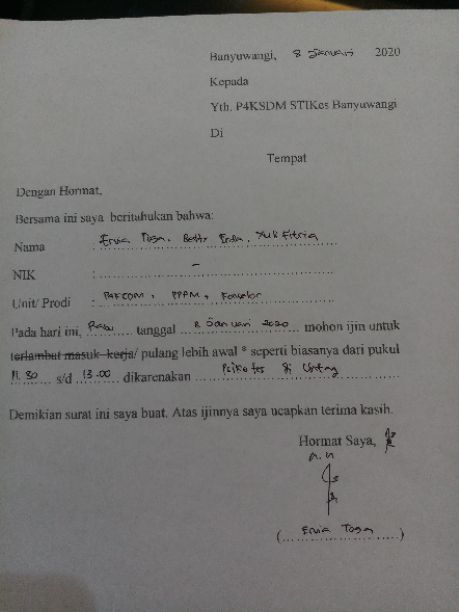 Banyuwangi, 8 Januari 2020
Kepada
Yth. P4KSDM STIKes Banyuwangi
Di
Tempat
Dengan Hormat,
Bersama ini saya beritahukan bahwa:
Nama : Ervia Tosa. Betty Enda. Yuk Fitria
NIK : -
Unit/ Prodi : P4KSDM, PPPM, Konselor
Pada hari ini, Rabu tanggal 8 Januari 2020 mohon ijin untuk
terlambat masuk kerja/ pulang lebih awal * seperti biasanya dari pukul
11.30 s/d 13.00 dikarenakan Psikotes di Untag
Demikian surat ini saya buat. Atas ijinnya saya ucapkan terima kasih.
Hormat Saya,
a.n
(Ervia Tosa)